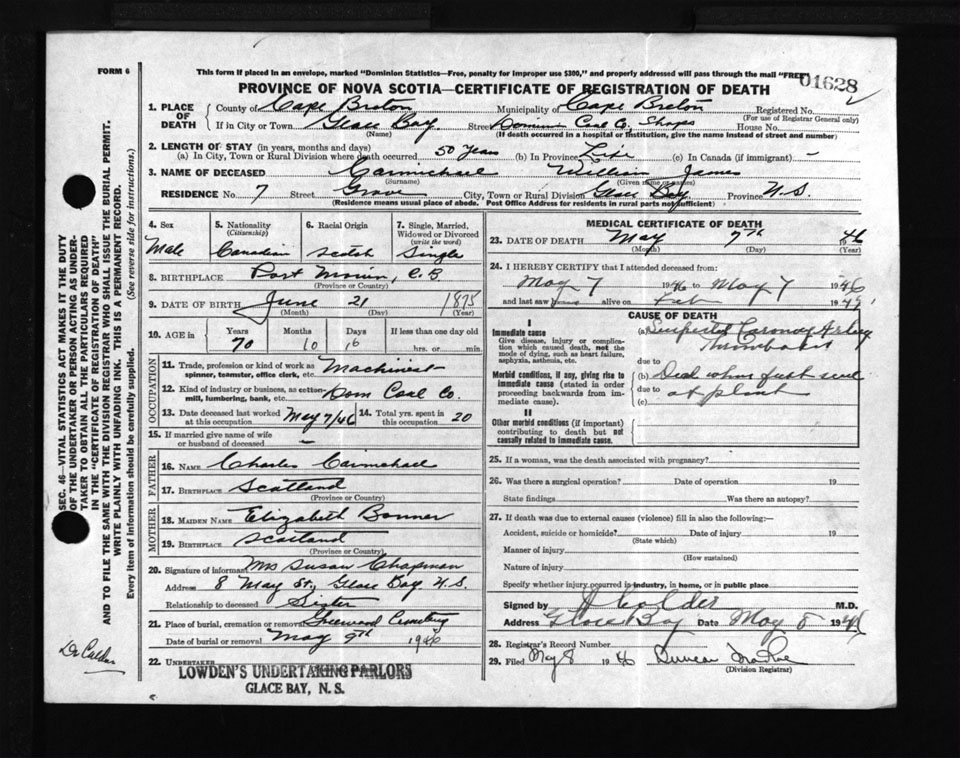 FORM 6
This form if placed in an envelope, marked "Dominion Statistics—Free, penalty for improper use $300," and properly addressed will pass through the mail "FREE"
01628
PROVINCE OF NOVA SCOTIA—CERTIFICATE OF REGISTRATION OF DEATH
1. PLACE OF DEATH
County of Cape Breton Municipality of Cape Breton Registered No.
(For use of Registrar General only)
If in City or Town Glace Bay Street Dominion Coal Co. Shops House No.
(Name) (If death occurred in a hospital or institution, give the name instead of street and number)
2. LENGTH OF STAY (in years, months and days)
(a) In City, Town or Rural Division where death occurred 50 Years (b) In Province Life (c) In Canada (if immigrant) -
3. NAME OF DECEASED Carmichael William James
(Surname) (Given name or names)
RESIDENCE No. 7 Street Grove City, Town or Rural Division Glace Bay Province N.S.
(Residence means usual place of abode. Post Office Address for residents in rural parts not sufficient)
4. Sex 5. Nationality (Citizenship) 6. Racial Origin 7. Single, Married, Widowed or Divorced (write the word)
Male Canadian Scotch Single
8. BIRTHPLACE Port Morien, C.B.
(Province or Country)
9. DATE OF BIRTH June 21 1875
(Month) (Day) (Year)
10. AGE in Years Months Days If less than one day old
70 10 16 hrs. or min.
OCCUPATION
11. Trade, profession or kind of work as spinner, teamster, office clerk, etc. Machinist
12. Kind of industry or business, as cotton-mill, lumbering, bank, etc. Dom Coal Co.
13. Date deceased last worked at this occupation May 7/46 14. Total yrs. spent in this occupation 20
15. If married give name of wife or husband of deceased -
FATHER
16. NAME Charles Carmichael
17. BIRTHPLACE Scotland
(Province or Country)
MOTHER
18. MAIDEN NAME Elizabeth Bonner
19. BIRTHPLACE Scotland
(Province or Country)
20. Signature of informant Mrs Susan Chapman
Address 8 May St., Glace Bay N.S.
Relationship to deceased Sister
21. Place of burial, cremation or removal Greenwood Cemetery
Date of burial or removal May 9th 1946
22. UNDERTAKER
LOWDEN'S UNDERTAKING PARLORS
GLACE BAY, N. S.
MEDICAL CERTIFICATE OF DEATH
23. DATE OF DEATH May 7th 1946
(Month) (Day) (Year)
24. I HEREBY CERTIFY that I attended deceased from:
May 7 1946 to May 7 1946
and last saw alive on Feb 1945
CAUSE OF DEATH
I
Immediate cause
Give disease, injury or complication which caused death, not the mode of dying, such as heart failure, asphyxia, asthenia, etc.
(a) Suspected Coronary Artery
Thrombosis
due to
Morbid conditions, if any, giving rise to immediate cause (stated in order proceeding backwards from immediate cause).
(b) Died when first seen
due to at plant
(c)
II
Other morbid conditions (if important) contributing to death but not causally related to immediate cause.
25. If a woman, was the death associated with pregnancy?
26. Was there a surgical operation? Date of operation 19
State findings Was there an autopsy?
27. If death was due to external causes (violence) fill in also the following:—
Accident, suicide or homicide? Date of injury 19
(State which)
Manner of injury
(How sustained)
Nature of injury
Specify whether injury occurred in industry, in home, or in public place
Signed by J Calder M.D.
Address Glace Bay Date May 8 1946
28. Registrar's Record Number
29. Filed May 8 1946 Duncan
(Division Registrar)
SEC. 46—VITAL STATISTICS ACT MAKES IT THE DUTY
OF THE UNDERTAKER OR PERSON ACTING AS UNDER-
TAKER TO OBTAIN ALL THE PARTICULARS REQUIRED
IN THE "CERTIFICATE OF REGISTRATION OF DEATH"
AND TO FILE THE SAME WITH THE DIVISION REGISTRAR WHO SHALL ISSUE THE BURIAL PERMIT.
WRITE PLAINLY WITH UNFADING INK. THIS IS A PERMANENT RECORD.
Every item of information should be carefully supplied. (See reverse side for instructions.)
Dr Calder